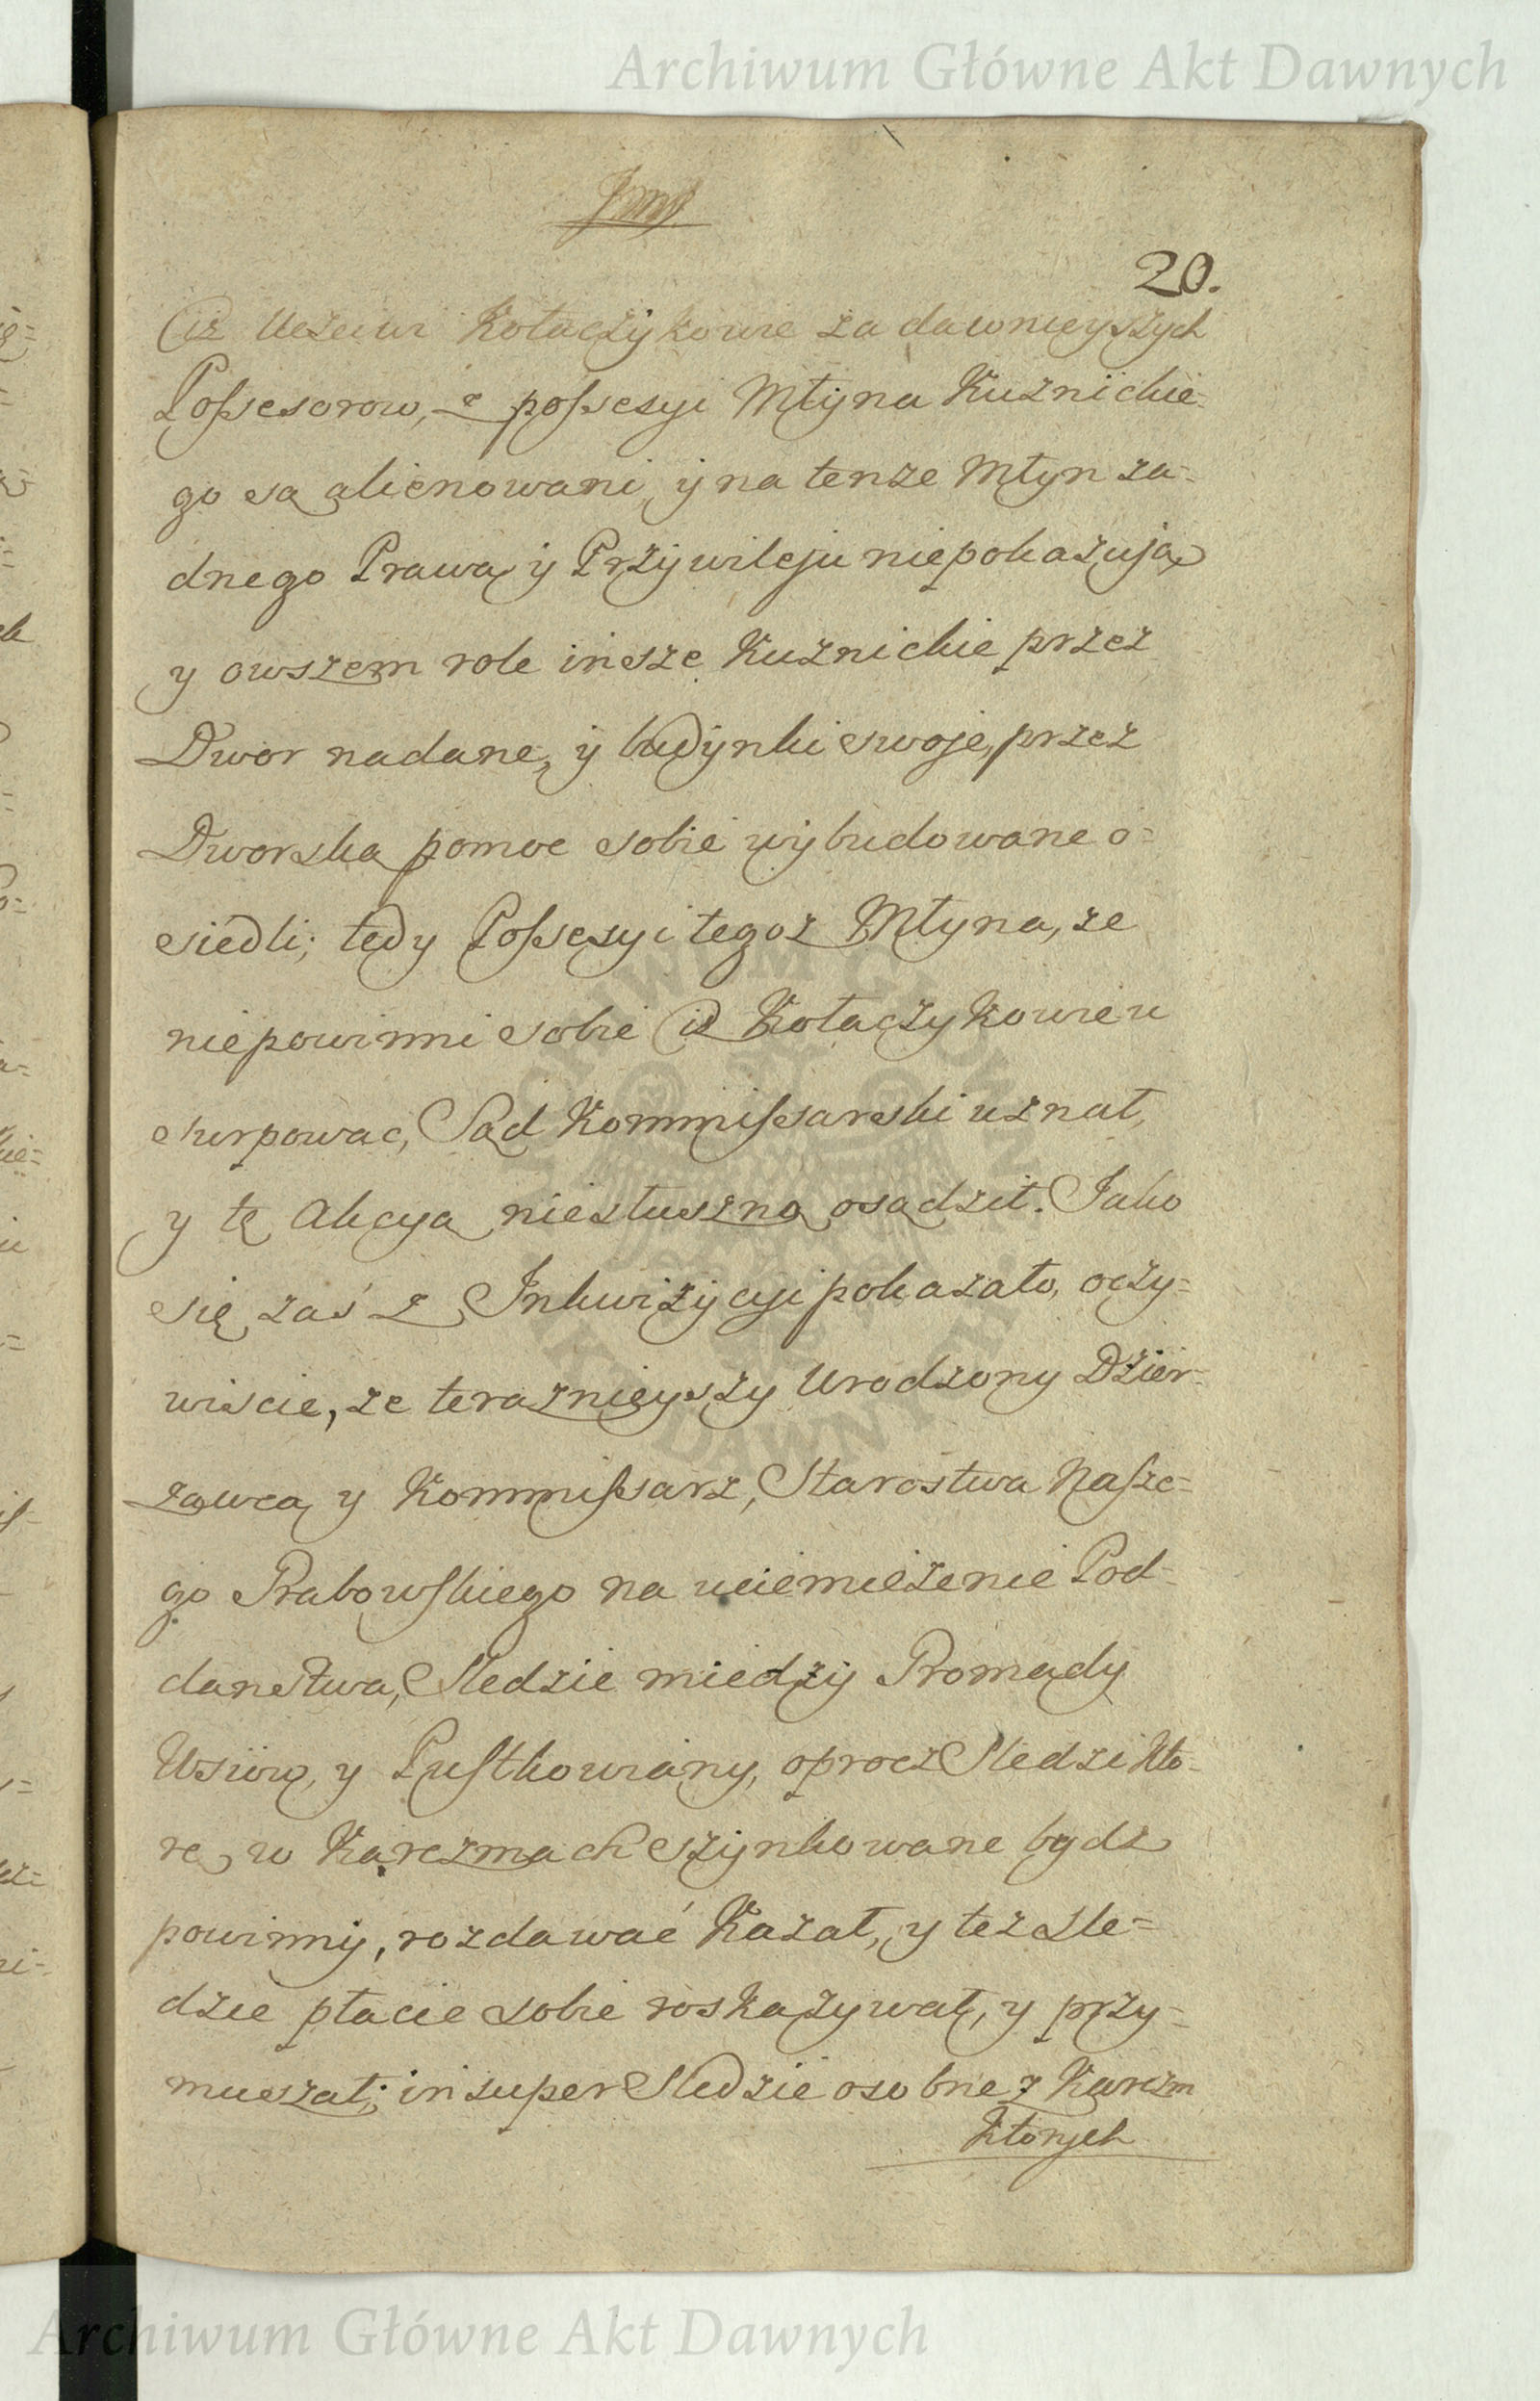 Archiwum Główne Akt Dawnych
20.
Ciż Uczciwi Kołaczykowie za dawnieyszych
Possesorow, z possesyi Młyna Kuznickie=
go są alienowani, y na tenże Młyn ża=
dnego Prawa y Przywileju niepokazują
y owszem role insze Kuznickie przez
Dwor nadane, y budynki swoje, przez
Dworską pomoc sobie wybudowane o=
siedli; tedy Possesyi tegoz Młyna, ze
niepowinni sobie ciż Kołaczykowie u
surpowac, Sąd Kommissarski uznał,
y tę Akcyą niesłuszną osądził. Jako
się zaś z Inkwizycyi pokazało, oczy=
wiscie, ze teraznieyszy Urodzony Dzier=
zawca y Kommissarz, Starostwa Nasze=
go Grabowskiego na uciemiężenie Pod=
danstwa, Sledzie miedzy Gromady
Wsiów, y Pustkowiany, oprocz Sledzi kto=
re, w Karczmach szynkowane bydz
powinny, rozdawać Kazał, y też Sle=
dzie płacie sobie roskazywał, y przy=
muszał; insuper Sledzie osobne z Karczm
Ktorych
Archiwum Główne Akt Dawnych